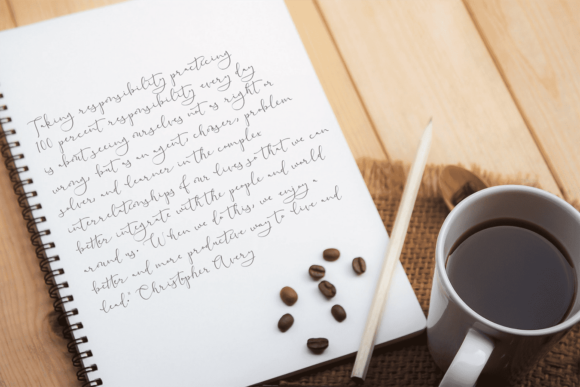 Taking responsibility practicing
100 percent responsibility every day
is about seeing ourselves not as right or
wrong, but as an agent, chooser, problem
solver and learner in the complex
interrelationships of our lives so that we can
better integrate with the people and world
around us. When we do this, we enjoy a
better and more productive way to live and
lead." Christopher Avery